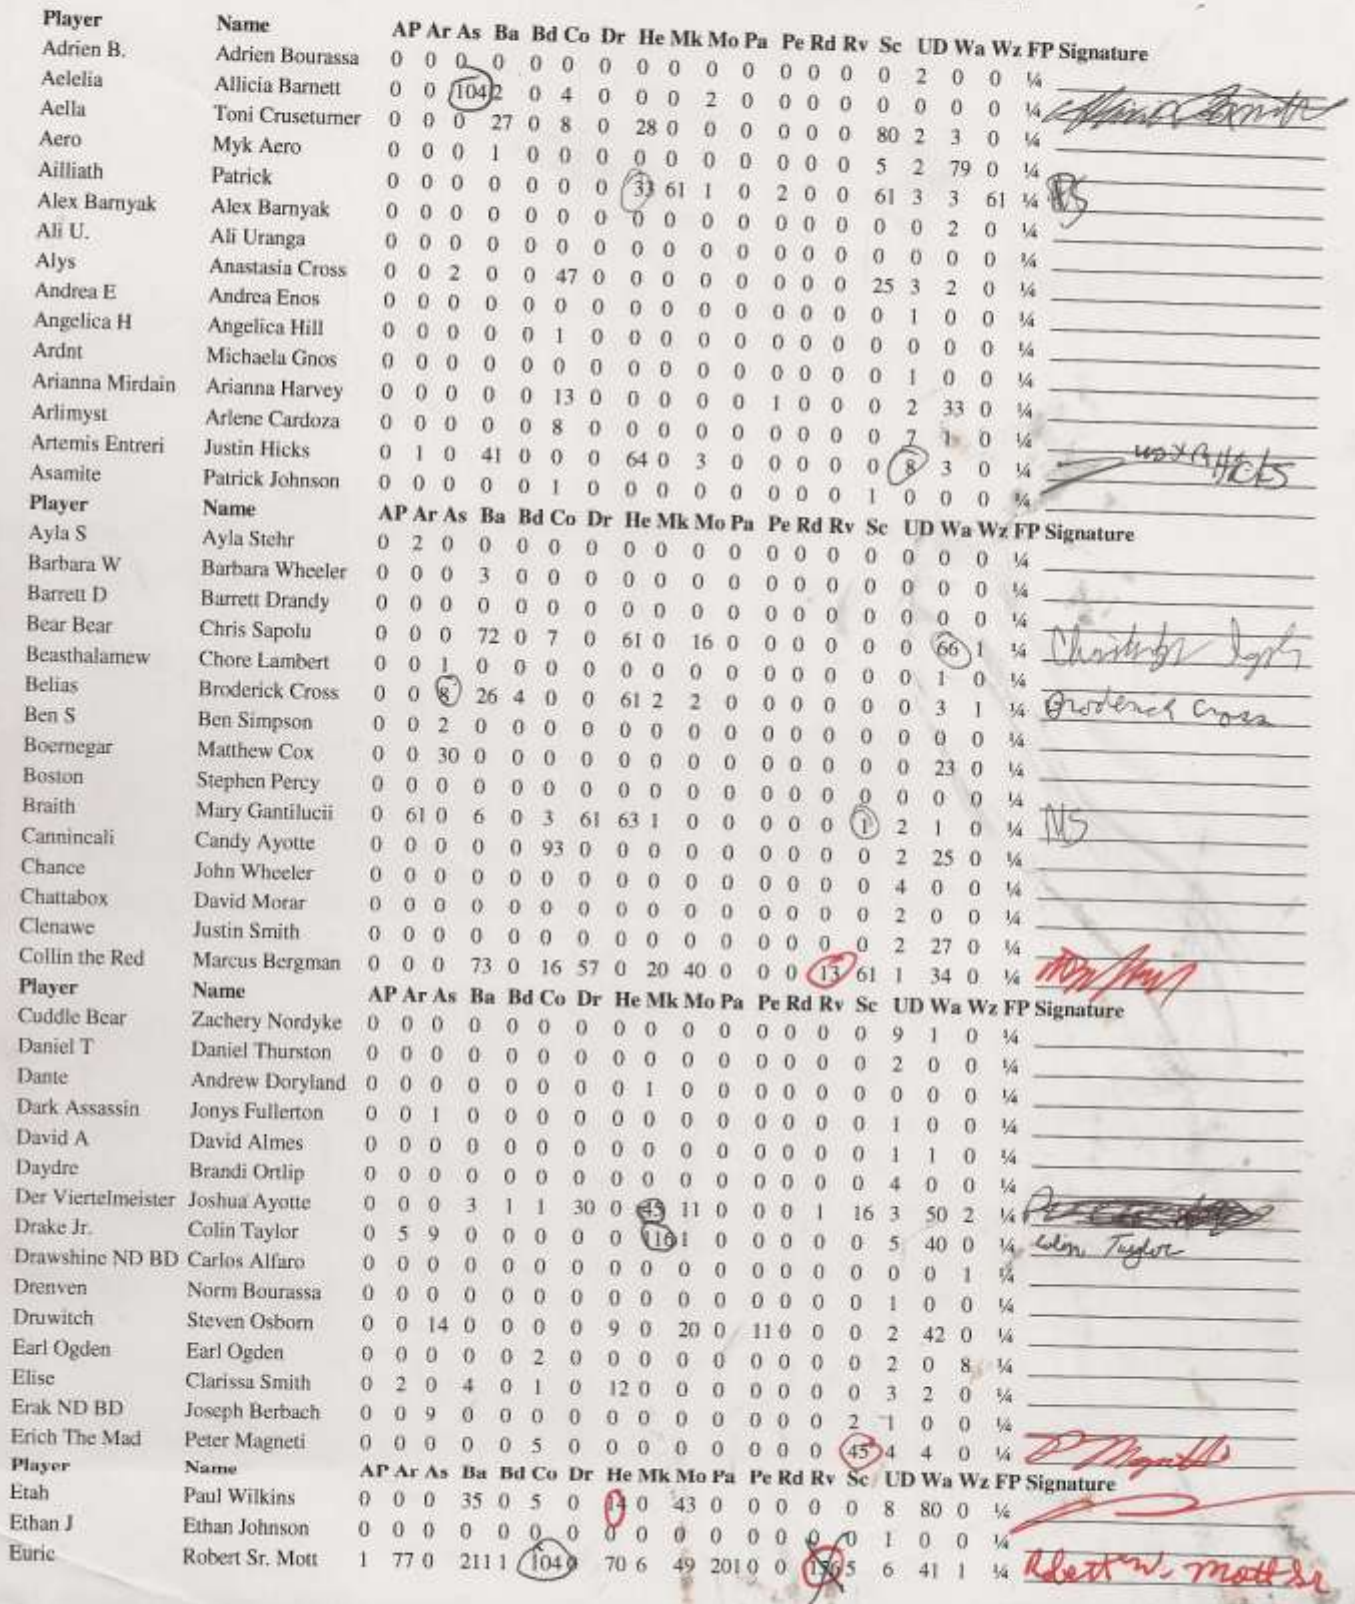 Player Name AP Ar As Ba Bd Co Dr He Mk Mo Pa Pe Rd Rv Sc UD Wa Wz FP Signature
Adrien B. Adrien Bourassa 0 0 0 0 0 0 0 0 0 0 0 0 0 0 0 2 0 0 ¼
Aelelia Allicia Barnett 0 0 104 2 0 4 0 0 0 2 0 0 0 0 0 0 0 0 ¼
Aella Toni Cruseturner 0 0 0 27 0 8 0 28 0 0 0 0 0 0 80 2 3 0 ¼
Aero Myk Aero 0 0 0 1 0 0 0 0 0 0 0 0 0 0 5 2 79 0 ¼
Ailliath Patrick 0 0 0 0 0 0 0 33 61 1 0 2 0 0 61 3 3 61 ¼
Alex Barnyak Alex Barnyak 0 0 0 0 0 0 0 0 0 0 0 0 0 0 0 0 2 0 ¼
Ali U. Ali Uranga 0 0 0 0 0 0 0 0 0 0 0 0 0 0 0 0 0 0 ¼
Alys Anastasia Cross 0 0 2 0 0 47 0 0 0 0 0 0 0 0 25 3 2 0 ¼
Andrea E Andrea Enos 0 0 0 0 0 0 0 0 0 0 0 0 0 0 0 1 0 0 ¼
Angelica H Angelica Hill 0 0 0 0 0 1 0 0 0 0 0 0 0 0 0 0 0 0 ¼
Ardnt Michaela Gnos 0 0 0 0 0 0 0 0 0 0 0 0 0 0 0 1 0 0 ¼
Arianna Mirdain Arianna Harvey 0 0 0 0 0 13 0 0 0 0 0 1 0 0 0 2 33 0 ¼
Arlimyst Arlene Cardoza 0 0 0 0 0 8 0 0 0 0 0 0 0 0 0 7 1 0 ¼
Artemis Entreri Justin Hicks 0 1 0 41 0 0 0 64 0 3 0 0 0 0 0 8 3 0 ¼
Asamite Patrick Johnson 0 0 0 0 0 1 0 0 0 0 0 0 0 0 1 0 0 0 ¼
Player Name AP Ar As Ba Bd Co Dr He Mk Mo Pa Pe Rd Rv Sc UD Wa Wz FP Signature
Ayla S Ayla Stehr 0 2 0 0 0 0 0 0 0 0 0 0 0 0 0 0 0 0 ¼
Barbara W Barbara Wheeler 0 0 0 3 0 0 0 0 0 0 0 0 0 0 0 0 0 0 ¼
Barrett D Barrett Drandy 0 0 0 0 0 0 0 0 0 0 0 0 0 0 0 0 0 0 ¼
Bear Bear Chris Sapolu 0 0 0 72 0 7 0 61 0 16 0 0 0 0 0 0 66 1 ¼
Beasthalamew Chore Lambert 0 0 1 0 0 0 0 0 0 0 0 0 0 0 0 0 1 0 ¼
Belias Broderick Cross 0 0 8 26 4 0 0 61 2 2 0 0 0 0 0 0 3 1 ¼ Broderick Cross
Ben S Ben Simpson 0 0 2 0 0 0 0 0 0 0 0 0 0 0 0 0 0 0 ¼
Boernegar Matthew Cox 0 0 30 0 0 0 0 0 0 0 0 0 0 0 0 0 23 0 ¼
Boston Stephen Percy 0 0 0 0 0 0 0 0 0 0 0 0 0 0 0 0 0 0 ¼
Braith Mary Gantilucii 0 61 0 6 0 3 61 63 1 0 0 0 0 0 1 2 1 0 ¼ NS
Cannincali Candy Ayotte 0 0 0 0 0 93 0 0 0 0 0 0 0 0 0 2 25 0 ¼
Chance John Wheeler 0 0 0 0 0 0 0 0 0 0 0 0 0 0 0 4 0 0 ¼
Chattabox David Morar 0 0 0 0 0 0 0 0 0 0 0 0 0 0 0 2 0 0 ¼
Clenawe Justin Smith 0 0 0 0 0 0 0 0 0 0 0 0 0 0 0 2 27 0 ¼
Collin the Red Marcus Bergman 0 0 0 73 0 16 57 0 20 40 0 0 0 13 61 1 34 0 ¼
Player Name AP Ar As Ba Bd Co Dr He Mk Mo Pa Pe Rd Rv Sc UD Wa Wz FP Signature
Cuddle Bear Zachery Nordyke 0 0 0 0 0 0 0 0 0 0 0 0 0 0 0 9 1 0 ¼
Daniel T Daniel Thurston 0 0 0 0 0 0 0 0 0 0 0 0 0 0 0 2 0 0 ¼
Dante Andrew Doryland 0 0 0 0 0 0 0 0 1 0 0 0 0 0 0 0 0 0 ¼
Dark Assassin Jonys Fullerton 0 0 1 0 0 0 0 0 0 0 0 0 0 0 0 1 0 0 ¼
David A David Almes 0 0 0 0 0 0 0 0 0 0 0 0 0 0 0 1 1 0 ¼
Daydre Brandi Ortlip 0 0 0 0 0 0 0 0 0 0 0 0 0 0 0 4 0 0 ¼
Der Viertelmeister Joshua Ayotte 0 0 0 3 1 1 30 0 45 11 0 0 0 1 16 3 50 2 ¼
Drake Jr. Colin Taylor 0 5 9 0 0 0 0 0 116 1 0 0 0 0 0 5 40 0 ¼ Colin Taylor
Drawshine ND BD Carlos Alfaro 0 0 0 0 0 0 0 0 0 0 0 0 0 0 0 0 0 1 ¼
Drenven Norm Bourassa 0 0 0 0 0 0 0 0 0 0 0 0 0 0 0 1 0 0 ¼
Druwitch Steven Osborn 0 0 14 0 0 0 0 9 0 20 0 11 0 0 0 2 42 0 ¼
Earl Ogden Earl Ogden 0 0 0 0 0 2 0 0 0 0 0 0 0 0 0 2 0 8 ¼
Elise Clarissa Smith 0 2 0 4 0 1 0 12 0 0 0 0 0 0 0 3 2 0 ¼
Erak ND BD Joseph Berbach 0 0 9 0 0 0 0 0 0 0 0 0 0 0 2 1 0 0 ¼
Erich The Mad Peter Magneti 0 0 0 0 0 5 0 0 0 0 0 0 0 0 45 4 4 0 ¼
Player Name AP Ar As Ba Bd Co Dr He Mk Mo Pa Pe Rd Rv Sc UD Wa Wz FP Signature
Etah Paul Wilkins 0 0 0 35 0 5 0 14 0 43 0 0 0 0 0 8 80 0 ¼
Ethan J Ethan Johnson 0 0 0 0 0 0 0 0 0 0 0 0 0 0 0 1 0 0 ¼
Euric Robert Sr. Mott 1 77 0 211 1 104 0 70 6 49 201 0 0 156 5 6 41 1 ¼ Robert W. Mott Sr